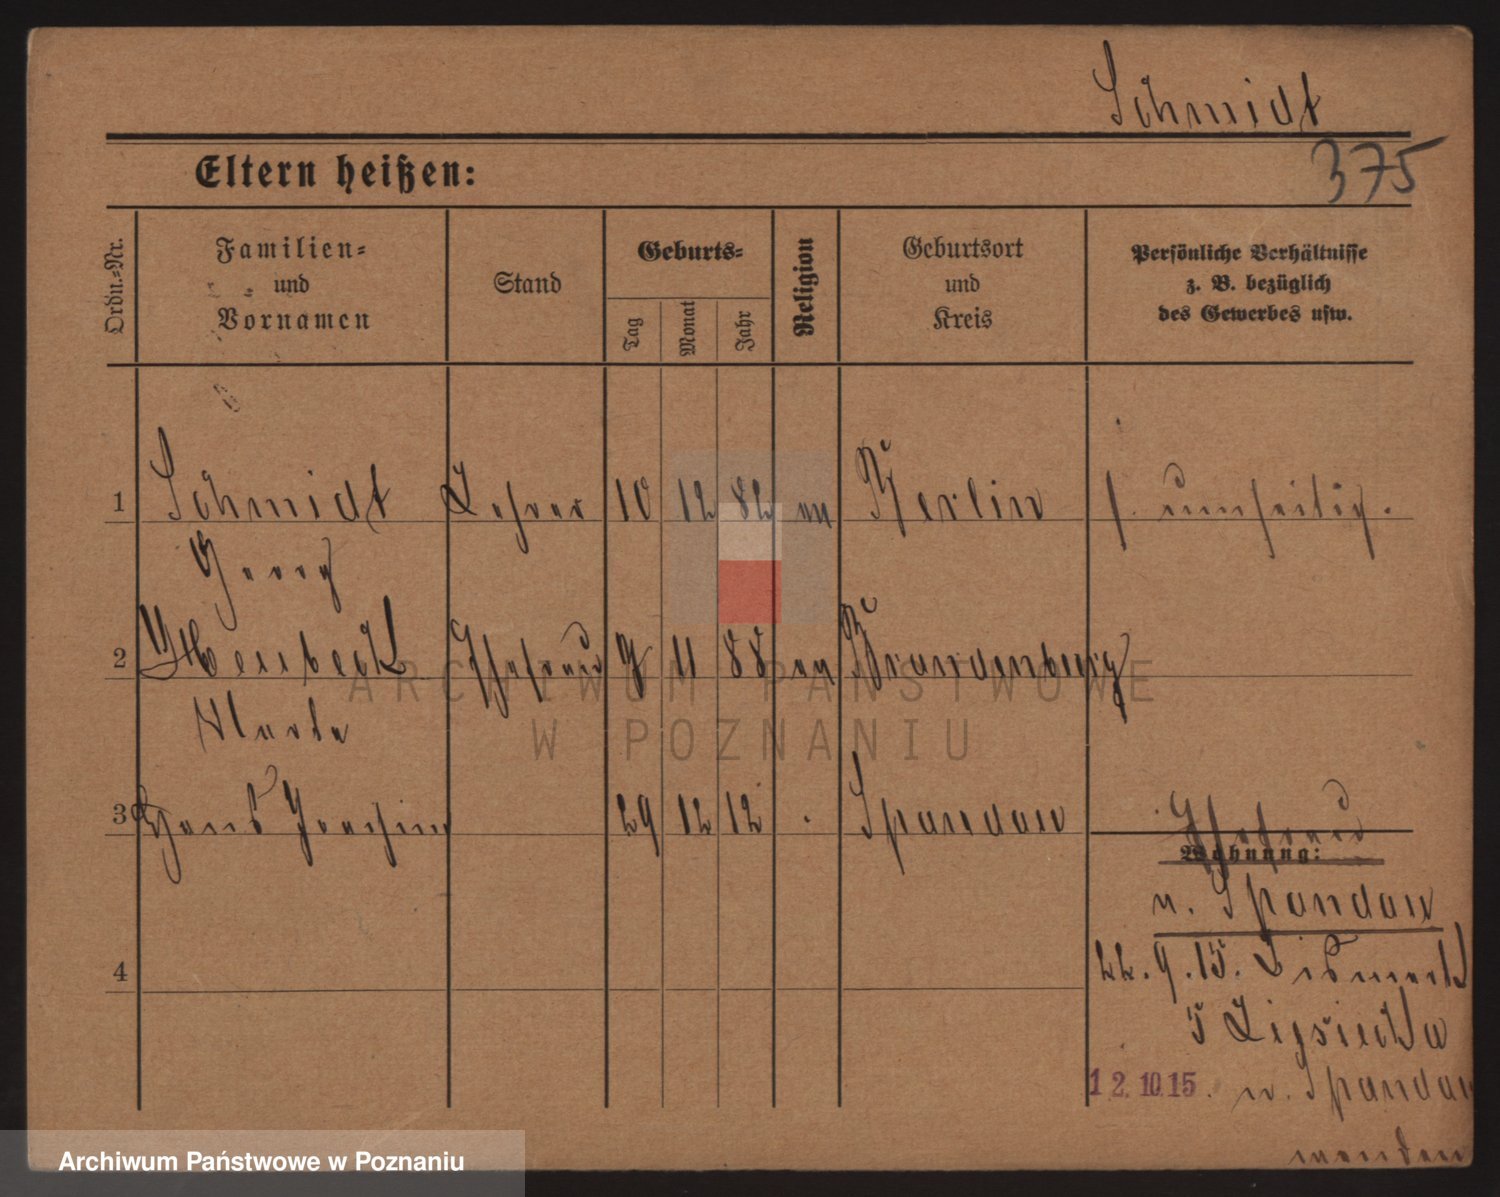 Schmidt
375
Eltern heißen:
Ordn.-Nr.
Familien-
und
Vornamen
Stand
Geburts-
Tag
Monat
Jahr
Religion
Geburtsort
und
Kreis
Persönliche Verhältnisse
z. B. bezüglich
des Gewerbes usw.
1 Schmidt Lehrer 10 12 82 ev Berlin f. umseitig.
Georg
2 Ehefrau 9 11 88 ev Brandenburg
ARCHIWUM PAŃSTWOWE
W POZNANIU
3 Hans Joachim 29 12 12 Spandau Ehefrau
Wohnung:
n. Spandau
4
22. 9. 15. Bismarck
5
12.10.15. n. Spandau
Archiwum Państwowe w Poznaniu